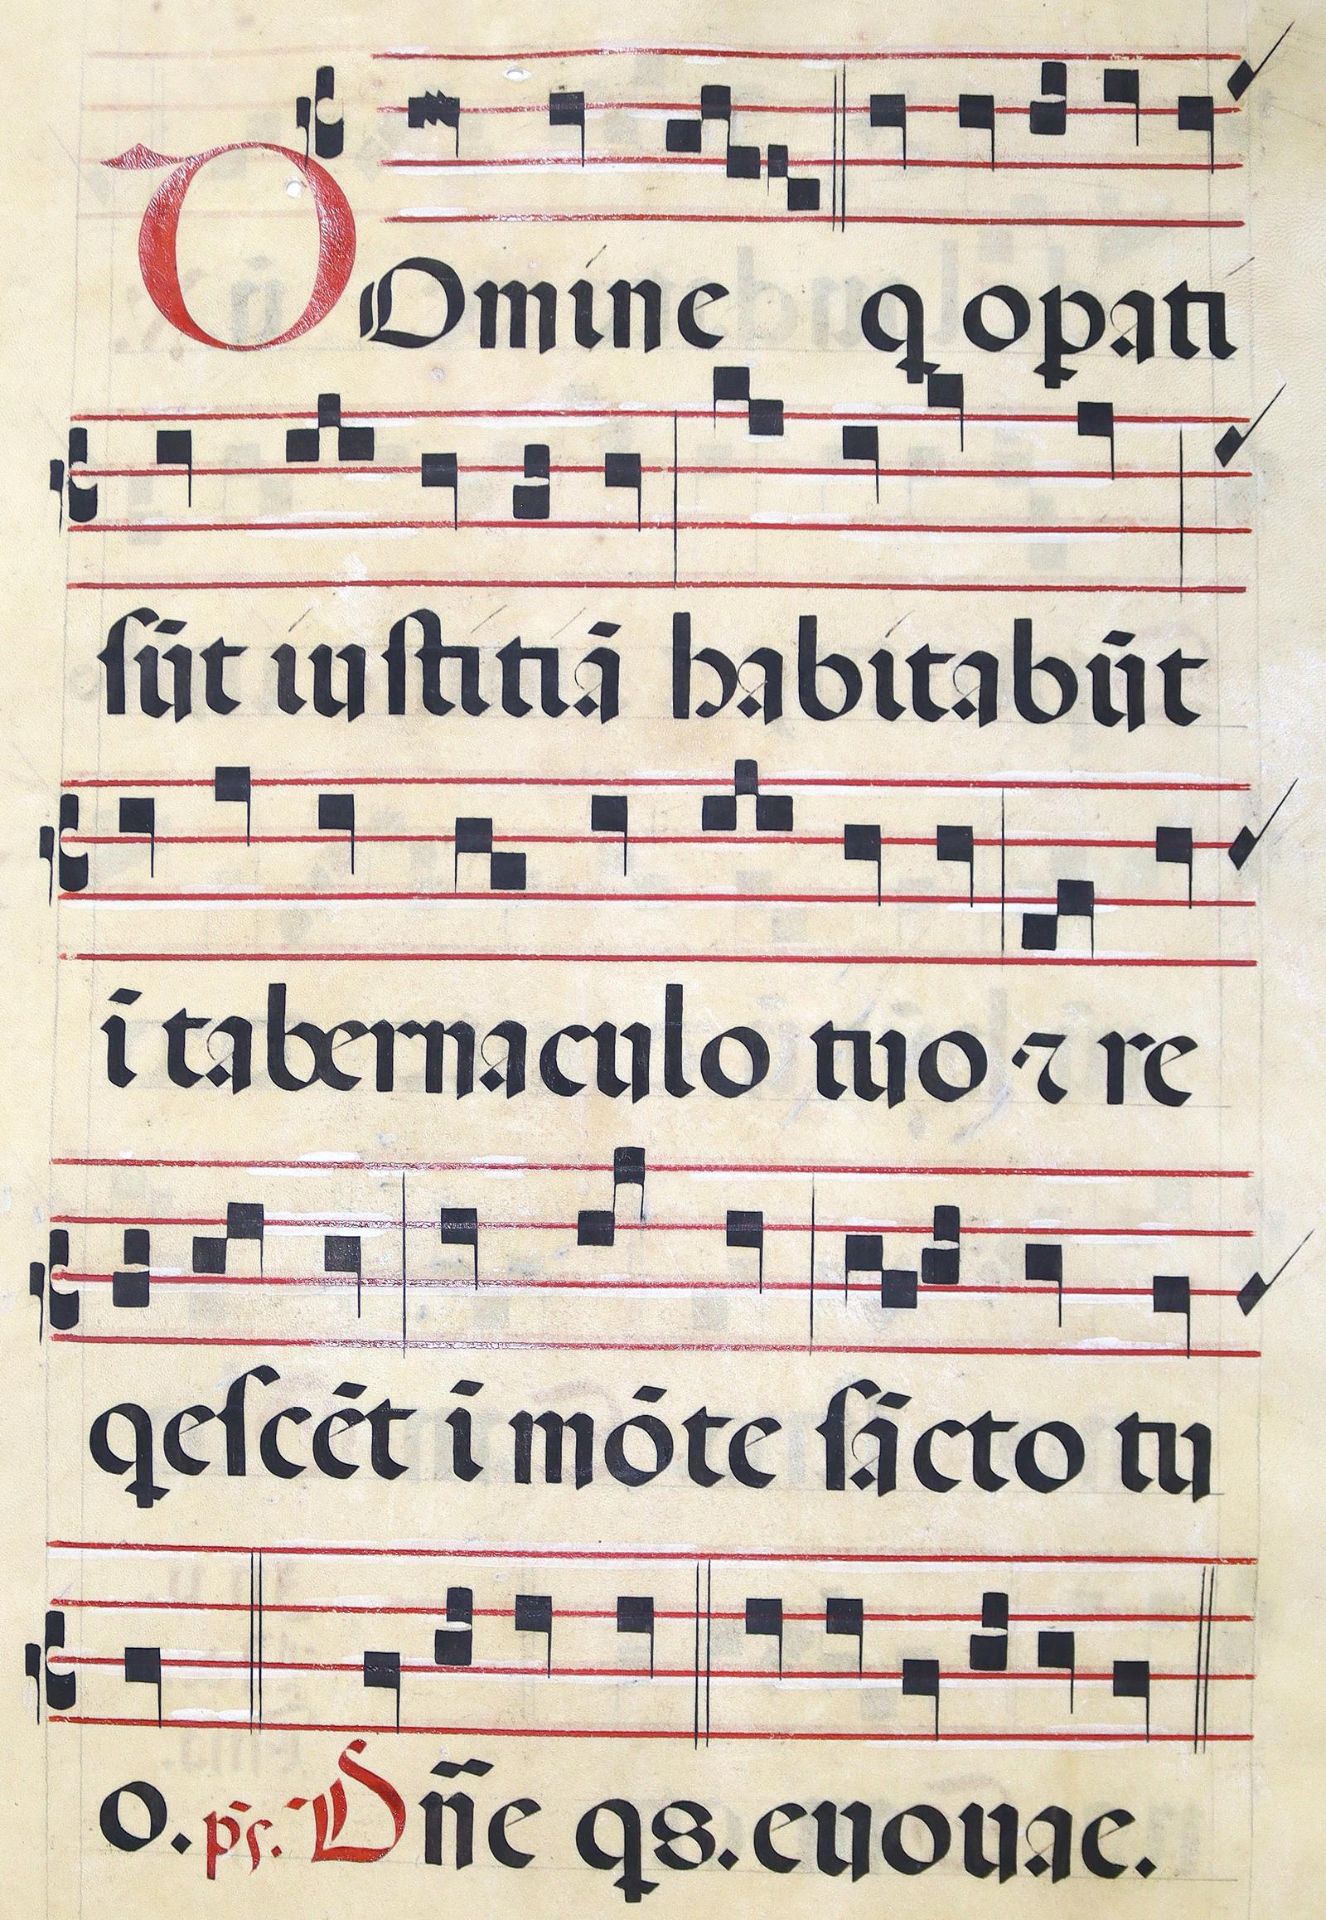 DOmine q opati
ſūt iuſtitiā habitabūt
ī tabernaculo tuo ⁊ re
qeſcēt ī mōte ſācto tu
o. pſ. Dn̄e qs. euouae.